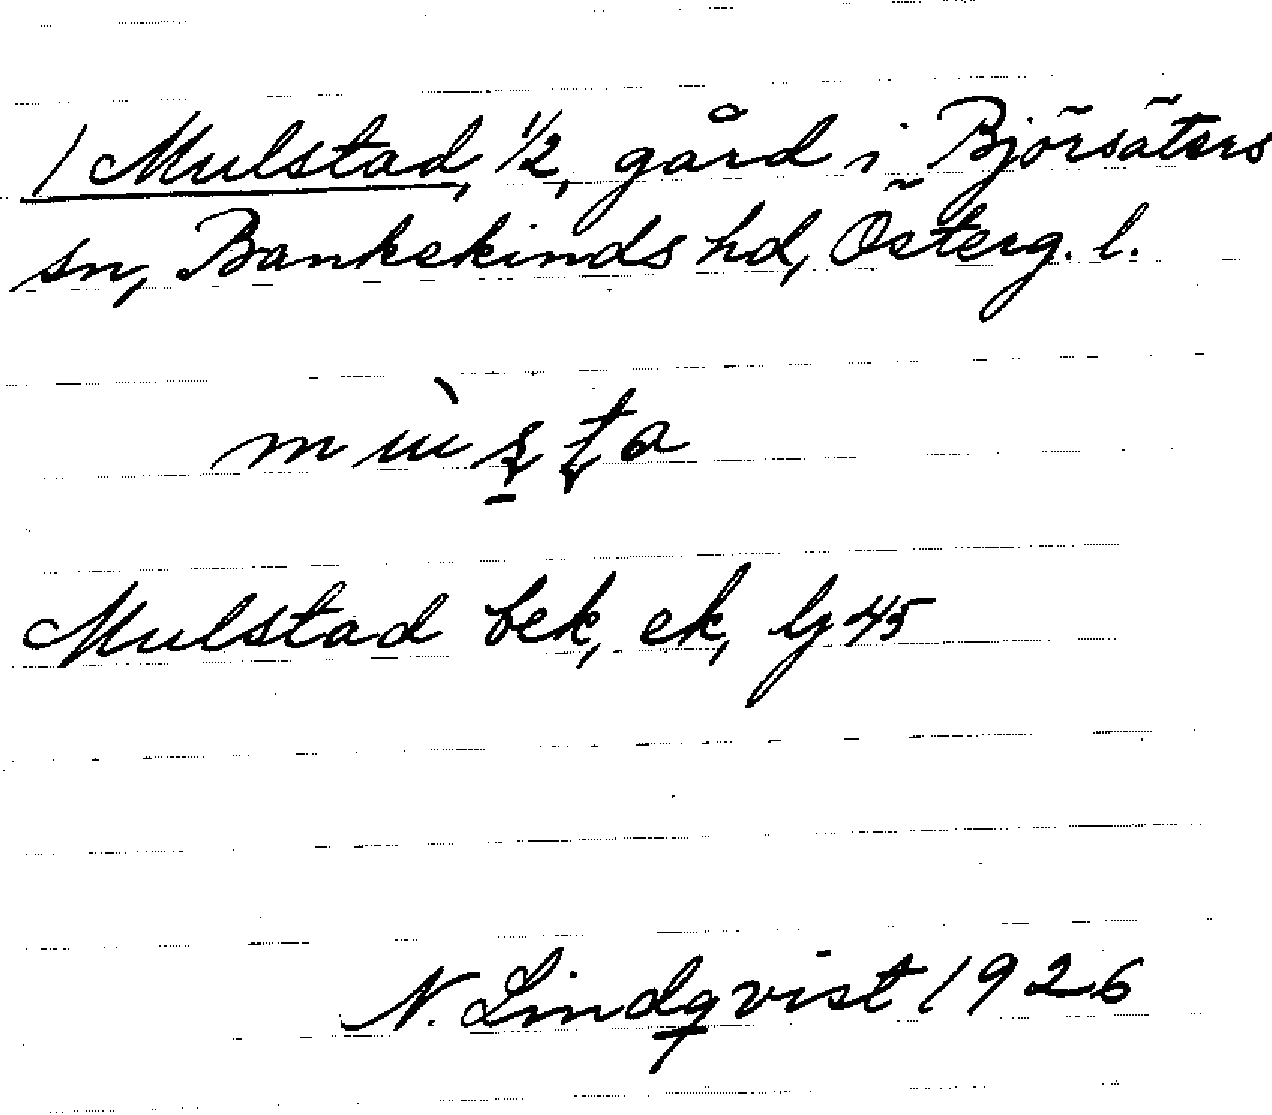 / Mulstad, 1/2, gård i Björsäters
sn, Bankekinds hd, Österg. l.
Mulstad bek, ek, lj 45
N. Lindqvist 1926